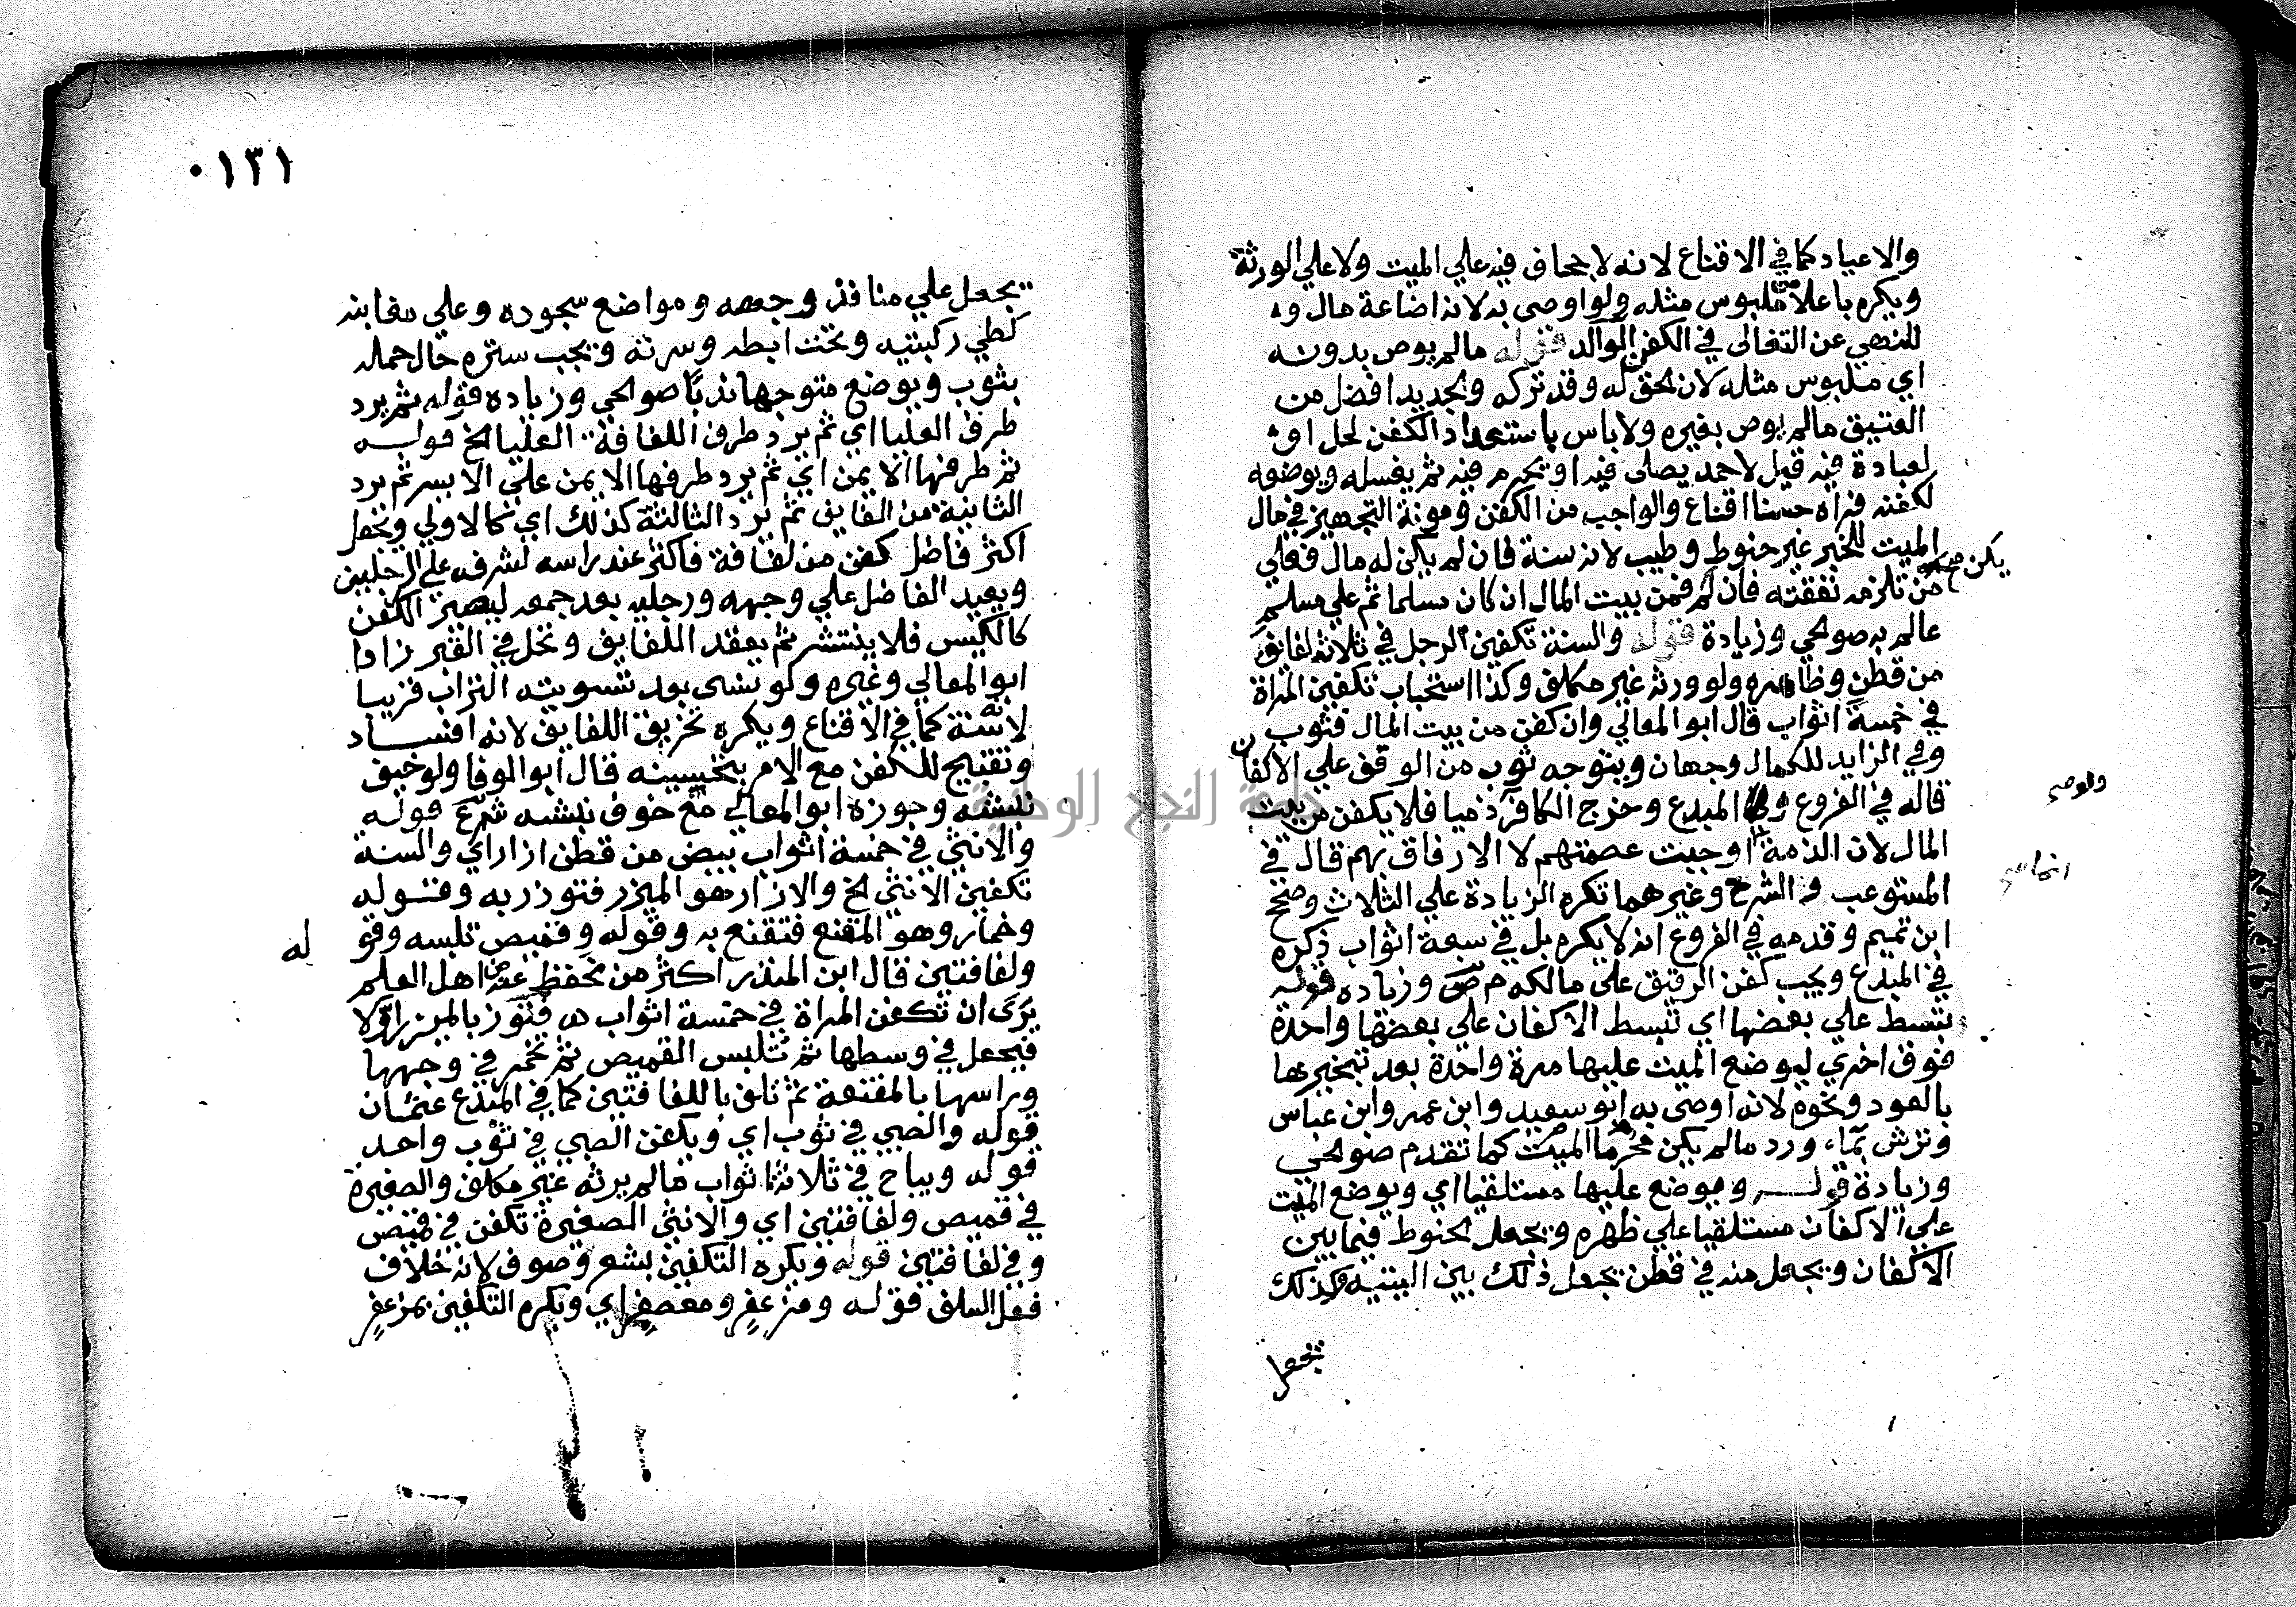 والاعياد كما في الاقناع لانه لا اجحاف فيه علي الميت ولا علي الورثة
ويكره با علا من ملبوس مثله ولو اوصى به لانه اضاعة مال و
للنهي عن التغالى في الكفن قوله مالم يوص بدونه
اي ملبوس مثله لان الحق له وقد تركه والجديد افضل من
العتيق مالم يوص بغيره ولا باس باستعداد الكفن لحل او
لعبادة فيه قيل لاحمد يصلى فيه او يحرم فيه ثم يغسله ويوضعه
لكفنه فراه حسنا اقناع والواجب من الكفن ومونة التجهيز في مال
الميت للخبر غير حنوط وطيب لانه سنة فان لم يكن له مال فعلي
من تلزمه نفقته فان لم يكن صح فمن بيت المال ان كان مسلما ثم علي مسلم
عالم به صوالحي وزيادة قوله والسنة تكفين الرجل في ثلاث لفايف
من قطن وظاهره ولو ورثه غير مكلف وكذا استحباب تكفين المراة
في خمسة اثواب قال ابو المعالي وان كفن من بيت المال فثوب
وفي الزايد للكمال وجهان ويتوجه ثوب من الوقف علي الاكفان
قاله في الفروع المبدع وخرج الكافر ذميا فلا يكفن من بيت
المال لان الذمة اوجبت عصمتهم لا الارفاق بهم قال في
المستوعب والشرح وغيرهما تكره الزيادة علي الثلاث وصحح
ابن تميم وقدمه في الفروع انه لا يكره بل في سبعة اثواب ذكره
في المبدع ويجب كفن الرقيق على مالكه م ص وزياده قوله
تبسط علي بعضها اي تبسط الاكفان علي بعضها واحدة
فوق اخري ليوضع الميت عليها مرة واحدة بعد تبخيرها
بالعود ونحوه لانه اوصى به ابو سعيد وابن عمر وابن عباس
وترش بماء ورد مالم يكن محرما الميت كما تقدم صوالحي
وزيادة قوله ويوضع عليها مستلقيا اي ويوضع الميت
علي الاكفان مستلقيا علي ظهره ويجعل الحنوط فيما بين
الاكفان ويجعل منه في قطن يجعل ذلك بين اليتيه وكذلك
يجعل
٠١٣١
يجعل علي منافذ وجهه ومواضع سجوده وعلي مغابنه
كطي ركبتيه وتحت ابطه وسرته ويجب ستره حال حمله
بثوب ويوضع متوجها ندبا صوالحي وزياده قوله ثم يرد
طرف العليا اي ثم يرد طرف اللفافة العليا الخ قوله
ثم طرفها الايمن اي ثم يرد طرفها الايمن علي الايسر ثم يرد
الثانية من الفايف ثم يرد الثالثة كذلك اي كالاولي ويجعل
اكثر فاضل كفن من لفافة فاكثر عند راسه لشرفه علي الرجلين
ويعيد الفاضل علي وجهه ورجليه بعد جمعه ليصير الكفن
كالكيس فلا ينتشر ثم يعقد اللفايف وتحل في القبر زاد
ابو المعالي وغيره ولو نسى بعد تسوية التراب قريبا
لانه سنة كما في الاقناع ويكره تخريق اللفايف لانه افساد
وتقبيح للكفن مع الامر بتحسينه قال ابو الوفا ولو خيف
نبشه وجوزه ابو المعالي مع خوف نبشه شرح قوله
والانثي في خمسة اثواب بيض من قطن ازار اي والسنة
تكفين الانثي الخ والازار هو الميزر فتوزر به وقوله
وخمار وهو المقنع فتقنع به وقوله وقميص تلبسه وقوله
ولفافتين قال ابن المنذر اكثر من نحفظ عنه من اهل العلم
يرى ان تكفن المراة في خمسة اثواب فتوزر بالميزر اولا
فيجعل في وسطها ثم تلبس القميص ثم تخمر في وجهها
وراسها بالمقنعة ثم تلف باللفافتين كما في المبدع
قوله والصبي في ثوب اي ويكفن الصبي في ثوب واحد
قوله ويباح في ثلاثة اثواب مالم يرثه غير مكلف والصغيرة
في قميص ولفافتين اي والانثى الصغيرة تكفن في قميص
وفي لفافتين قوله ويكره التكفين بشعر وصوف لانه خلاف
فعل السلف قوله ومزعفر ومعصفر اي ويكره التكفين بمزعفر
جامعة النجاح الوطنية